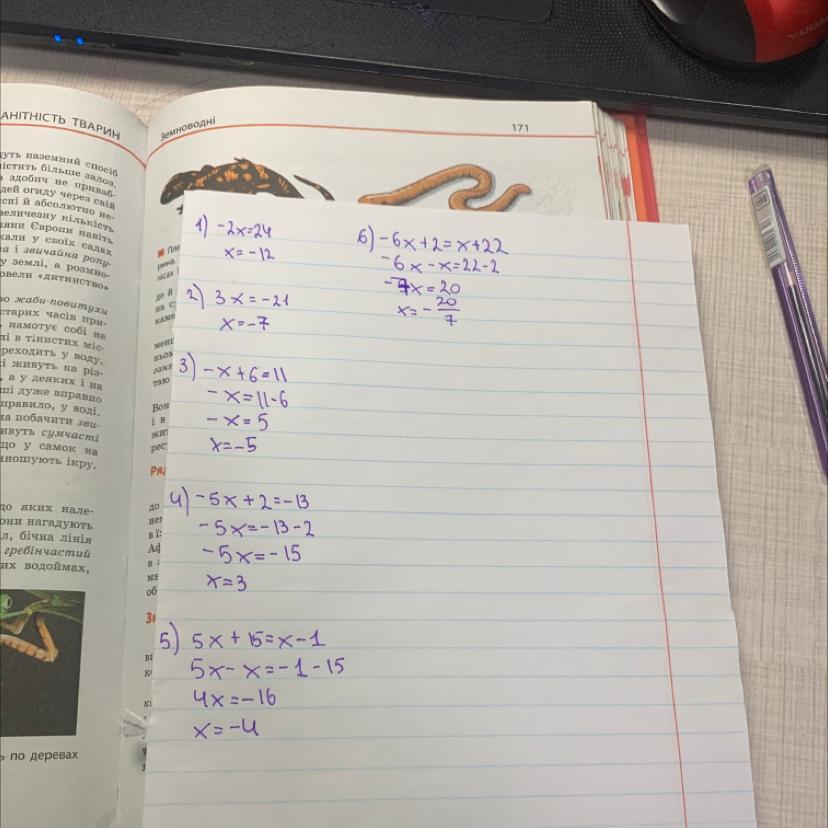 АНІТНІСТЬ ТВАРИН
дуть наземний спосіб
містить більше залоз,
здобич не приваб-
дей огиду через свій
сні й абсолютно не-
величезну кількість
їни Європи навіть
кали у своїх садах
на і звичайна ропу-
у землі, а розмно-
овели «дитинство»
во жаби-повитухи
старих часів при-
, намотує собі на
лі в тінистих міс-
реходить у воду.
кі живуть на різ-
, а у деяких і на
ші дуже вправно
правило, у воді.
на побачити зви-
ивуть сумчасті
що у самок на
иношують ікру.
до яких нале-
они нагадують
л, бічна лінія
гребінчастий
их водоймах,
ь по деревах
Земноводні
171
1) -2x=24
x=-12
2) 3x=-21
x=-7
3) -x+6=11
-x=11-6
-x=5
x=-5
4) -5x+2=-13
-5x=-13-2
-5x=-15
x=3
5) 5x+15=x-1
5x-x=-1-15
4x=-16
x=-4
6) -6x+2=x+22
-6x-x=22-2
-7x=20
x=-20/7